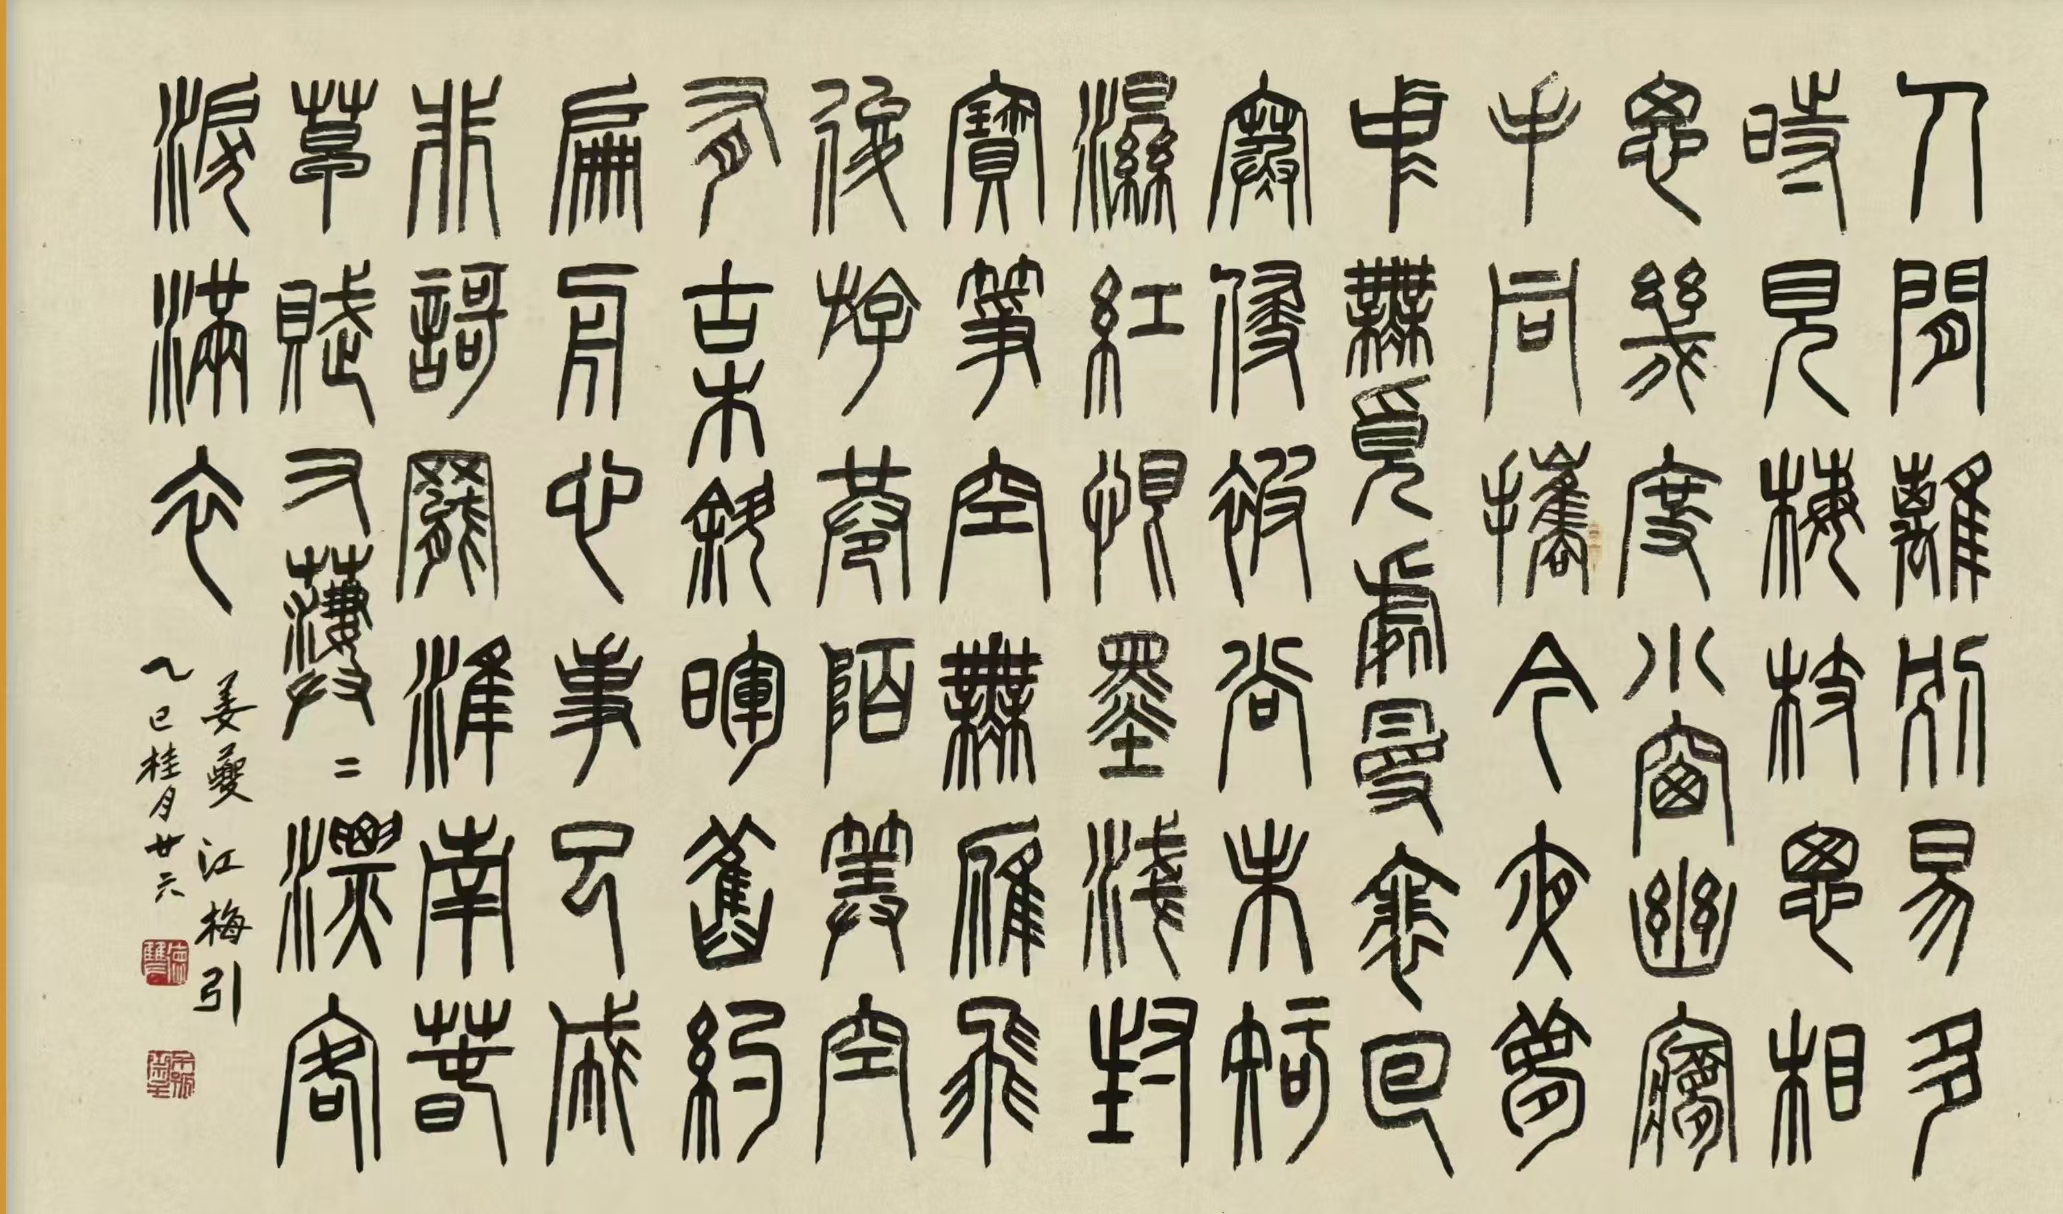 人閒離別易多
時見梅枝思相
思幾度小窗幽㝱
手同攜今夜夢
中無覓處曼裵回
寒侵被尚未知
濕紅恨墨淺封
寶箏空無雁飛
後斿巷陌算空
有古木斜暉舊約
扁舟心事已成
非謌罷淮南春
草賦又萋〻漂客
淚滿衣
姜夔江梅引
乙巳桂月廿六